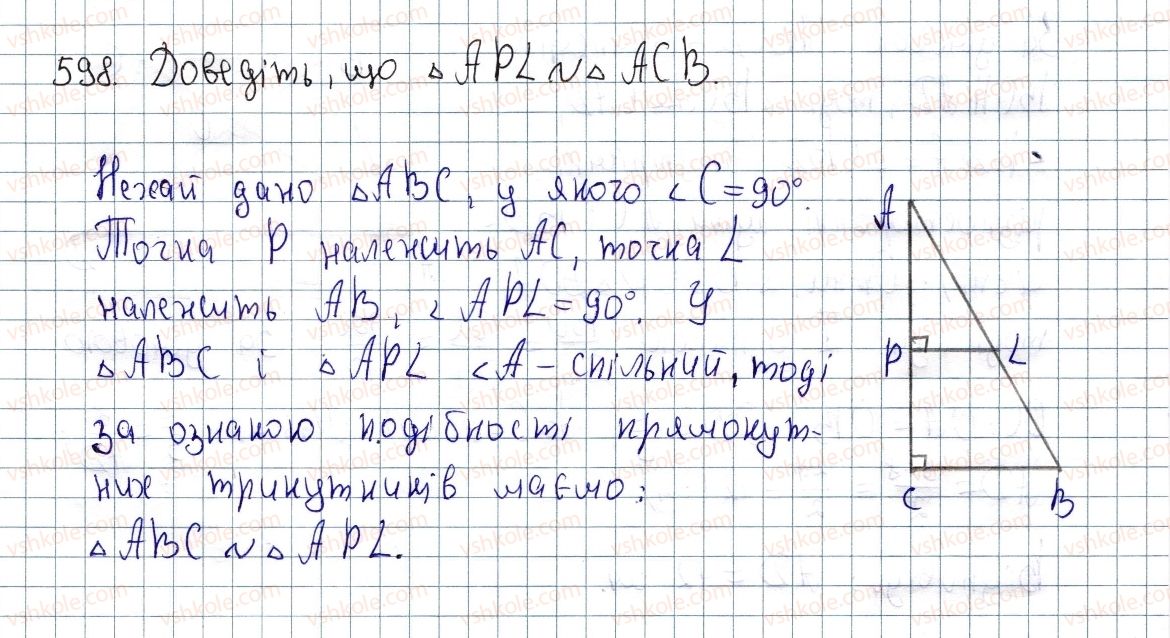 598. Доведіть, що △APL ∾ △ACB.
Нехай дано △ABC, у якого ∠C = 90°.
Точка P належить AC, точка L
належить AB, ∠APL = 90°. У
△ABC і △APL ∠A – спільний, тоді
за ознакою подібності прямокут-
них трикутників маємо:
△ABC ∾ △APL.
A
P
L
C
B
vshkole.com